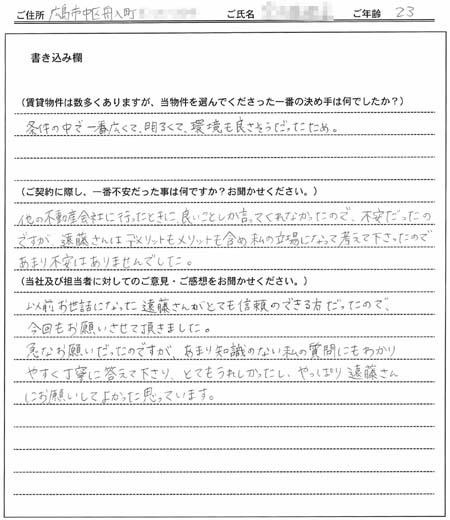 ご住所 広島市中区舟入町 ご氏名 ご年齢 23
書き込み欄
(賃貸物件は数多くありますが、当物件を選んでくださった一番の決め手は何でしたか?)
条件の中で一番広くて、明るくて、環境も良さそうだったため。
(ご契約に際し、一番不安だった事は何ですか?お聞かせください。)
他の不動産会社に行ったときに、良いことしか言ってくれなかったので、不安だったの
ですが、遠藤さんはデメリットもメリットも含め私の立場になって考えて下さったので
あまり不安はありませんでした。
(当社及び担当者に対してのご意見・ご感想をお聞かせください。)
以前お世話になった遠藤さんがとても信頼のできる方だったので、
今回もお願いさせて頂きました。
急なお願いだったのですが、あまり知識のない私の質問にもわかり
やすく丁寧に答えて下さり、とてもうれしかったし、やっぱり遠藤さん
にお願いしてよかった思っています。